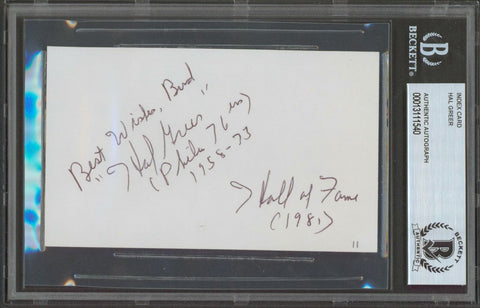 Best Wishes, Bud
"Hal Greer"
(Phila 76ers)
1958-73
Hall of Fame
(1981)
11
BECKETT
B
INDEX CARD
HAL GREER
AUTHENTIC AUTOGRAPH
00013111540
BECKETT
B
authentic